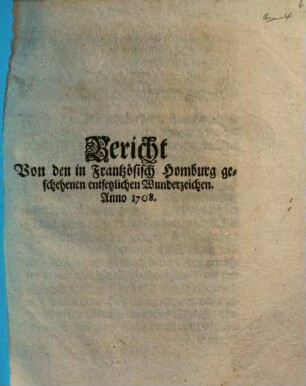 6
Bericht
Von den in Frantzösisch Homburg ge-
schehenen entsetzlichen Wunderzeichen.
Anno 1708.